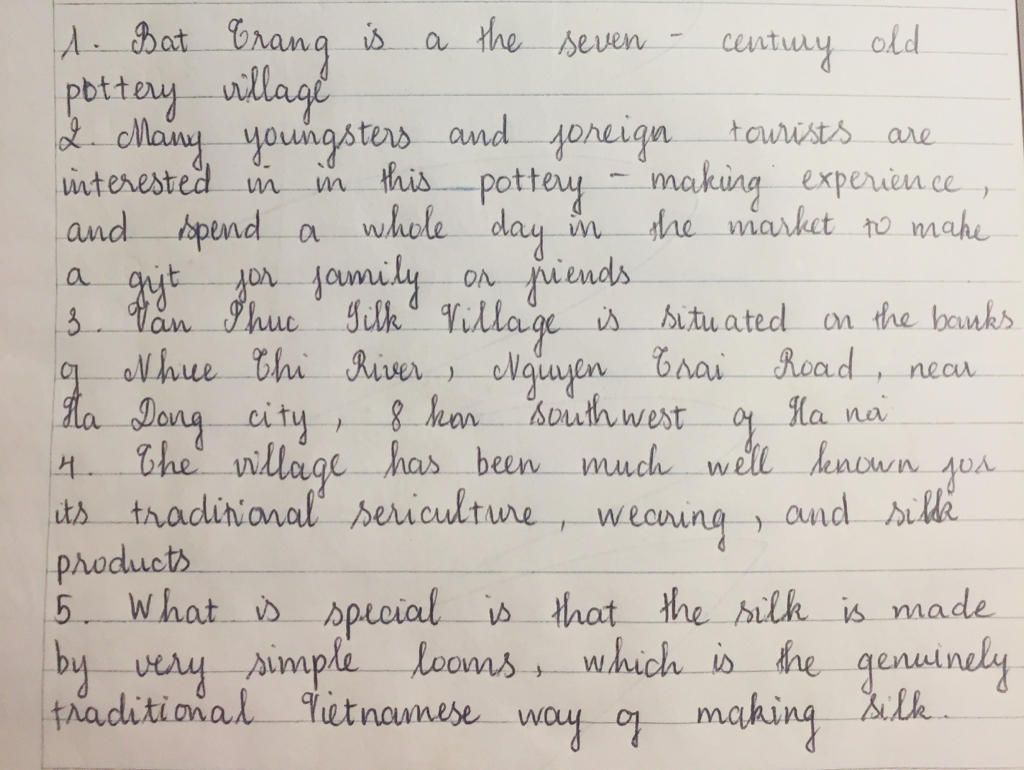 1. Bat Trang is a the seven - century old
pottery village
2. Many youngsters and foreign tourists are
interested in in this pottery - making experience,
and spend a whole day in the market to make
a gift for family or friends
3. Van Phuc Silk Village is situated on the banks
of Nhue Thi River, Nguyen Trai Road, near
Ha Dong city, 8 km southwest of Ha na
4. The village has been much well known for
its traditional sericulture, weaving, and silk
products
5. What is special is that the silk is made
by very simple looms, which is the genuinely
traditional Vietnamese way of making silk.